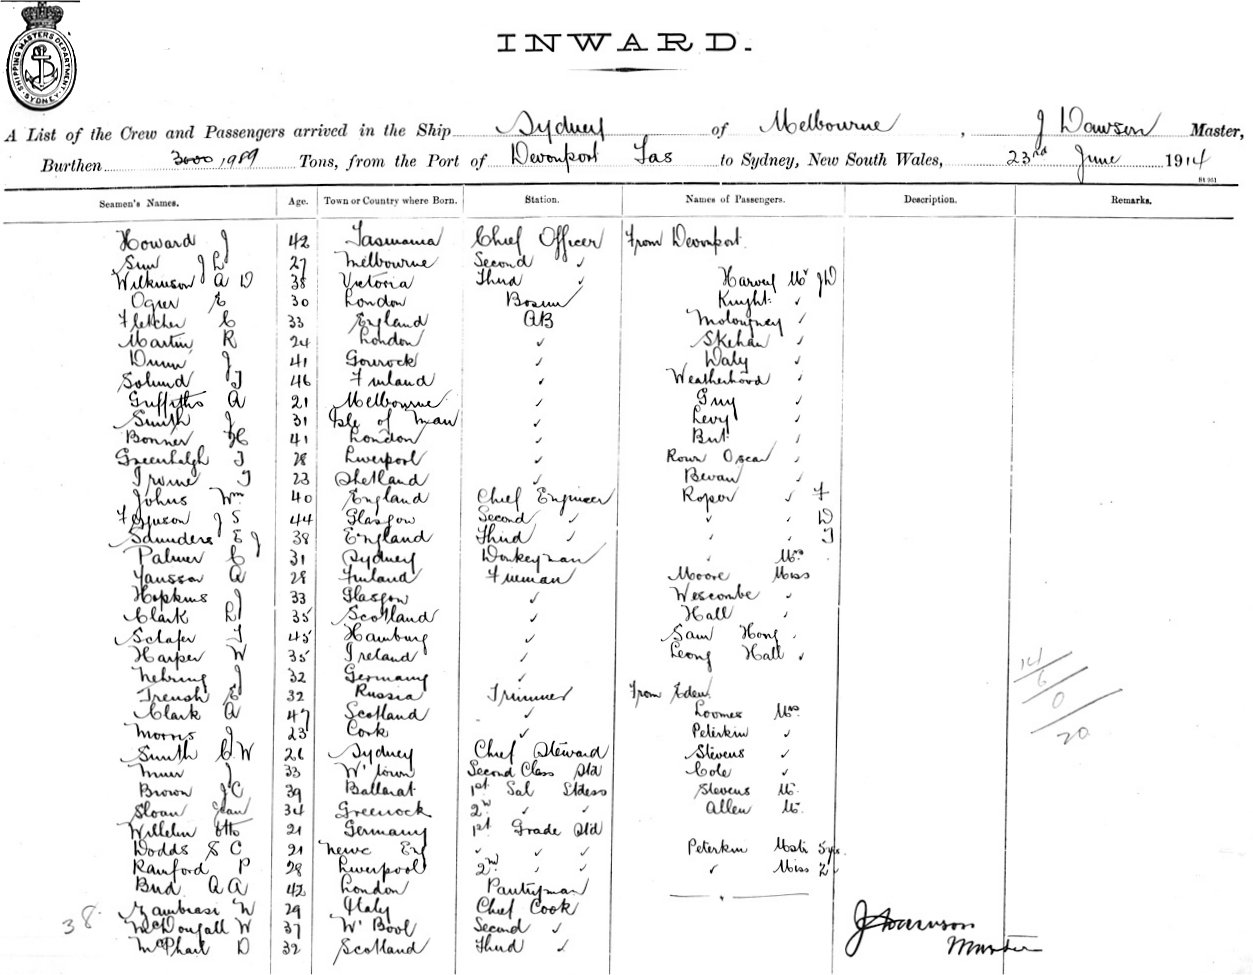 SHIPPING MASTERS DEPARTMENT SYDNEY
INWARD.
A List of the Crew and Passengers arrived in the Ship Sydney of Melbourne, J Dawson Master,
Burthen 3000 1,989 Tons, from the Port of Devonport Tas to Sydney, New South Wales, 23rd June 1914
St 951
Seamen's Names. Age. Town or Country where Born. Station. Names of Passengers. Description. Remarks.
Howard J 42 Tasmania Chief Officer From Devonport
Sim J L 27 Melbourne Second ✓
Wilkinson A D 38 Victoria Third ✓ Harvey Mr JD
Ogier E 30 London Bosun Knight ✓
Fletcher C 33 England AB Molougney ✓
Martin R 24 London ✓ Skehan ✓
Dunn J 41 Gourock ✓ Daly ✓
Solund T 46 Finland ✓ Weatherhood ✓
Griffiths A 21 Melbourne ✓ Guy ✓
Smith J 31 Isle of Man ✓ Levy ✓
Bonner H 41 London ✓ But ✓
Greenhalgh T 28 Liverpool ✓ Oscar ✓
Irvine T 23 Shetland ✓ Bevan ✓
Johns Wm 40 England Chief Engineer Roper ✓ F
Ferguson J S 44 Glasgow Second ✓ ✓ ✓ D
Saunders E J 38 England Third ✓ ✓ ✓ T
Palmer C 31 Sydney Donkeyman ✓ Mrs
Jansson A 28 Finland Fireman Moore Miss
Hopkins J 33 Glasgow ✓ Wescombe ✓
Clark L 35 Scotland ✓ Hall ✓
Schafer T 45 Hamburg ✓ Sam Hong ✓
Harper W 35 Ireland ✓ Leong Hall ✓
Nehring J 32 Germany ✓
Trensh E 32 Russia Trimmer From Eden
Clark A 47 Scotland ✓ Loomes Mrs
Morris J 23 Cork ✓ Peterkin ✓
Smith C W 26 Sydney Chief Steward Stevens ✓
Muir J 33 W'town Second Class Std Cole ✓
Brown J C 39 Ballarat 1st Sal Stdess Stevens Mr
Sloan Jean 34 Greenock 2nd ✓ ✓ Allen Mr
Willelm Otto 21 Germany 1st Grade Std
Dodds S C 21 Newc Eng ✓ ✓ ✓ Peterkin Mstr 5yrs
Rainford P 28 Liverpool 2nd ✓ ✓ ✓ Miss 2
Bird A A 42 London Pantryman
Zambrasi N 29 Italy Chief Cook
McDougall W 37 W'Bool Second ✓
McPhail D 32 Scotland Third ✓
38
14
6
0
20
J Dawson
Master